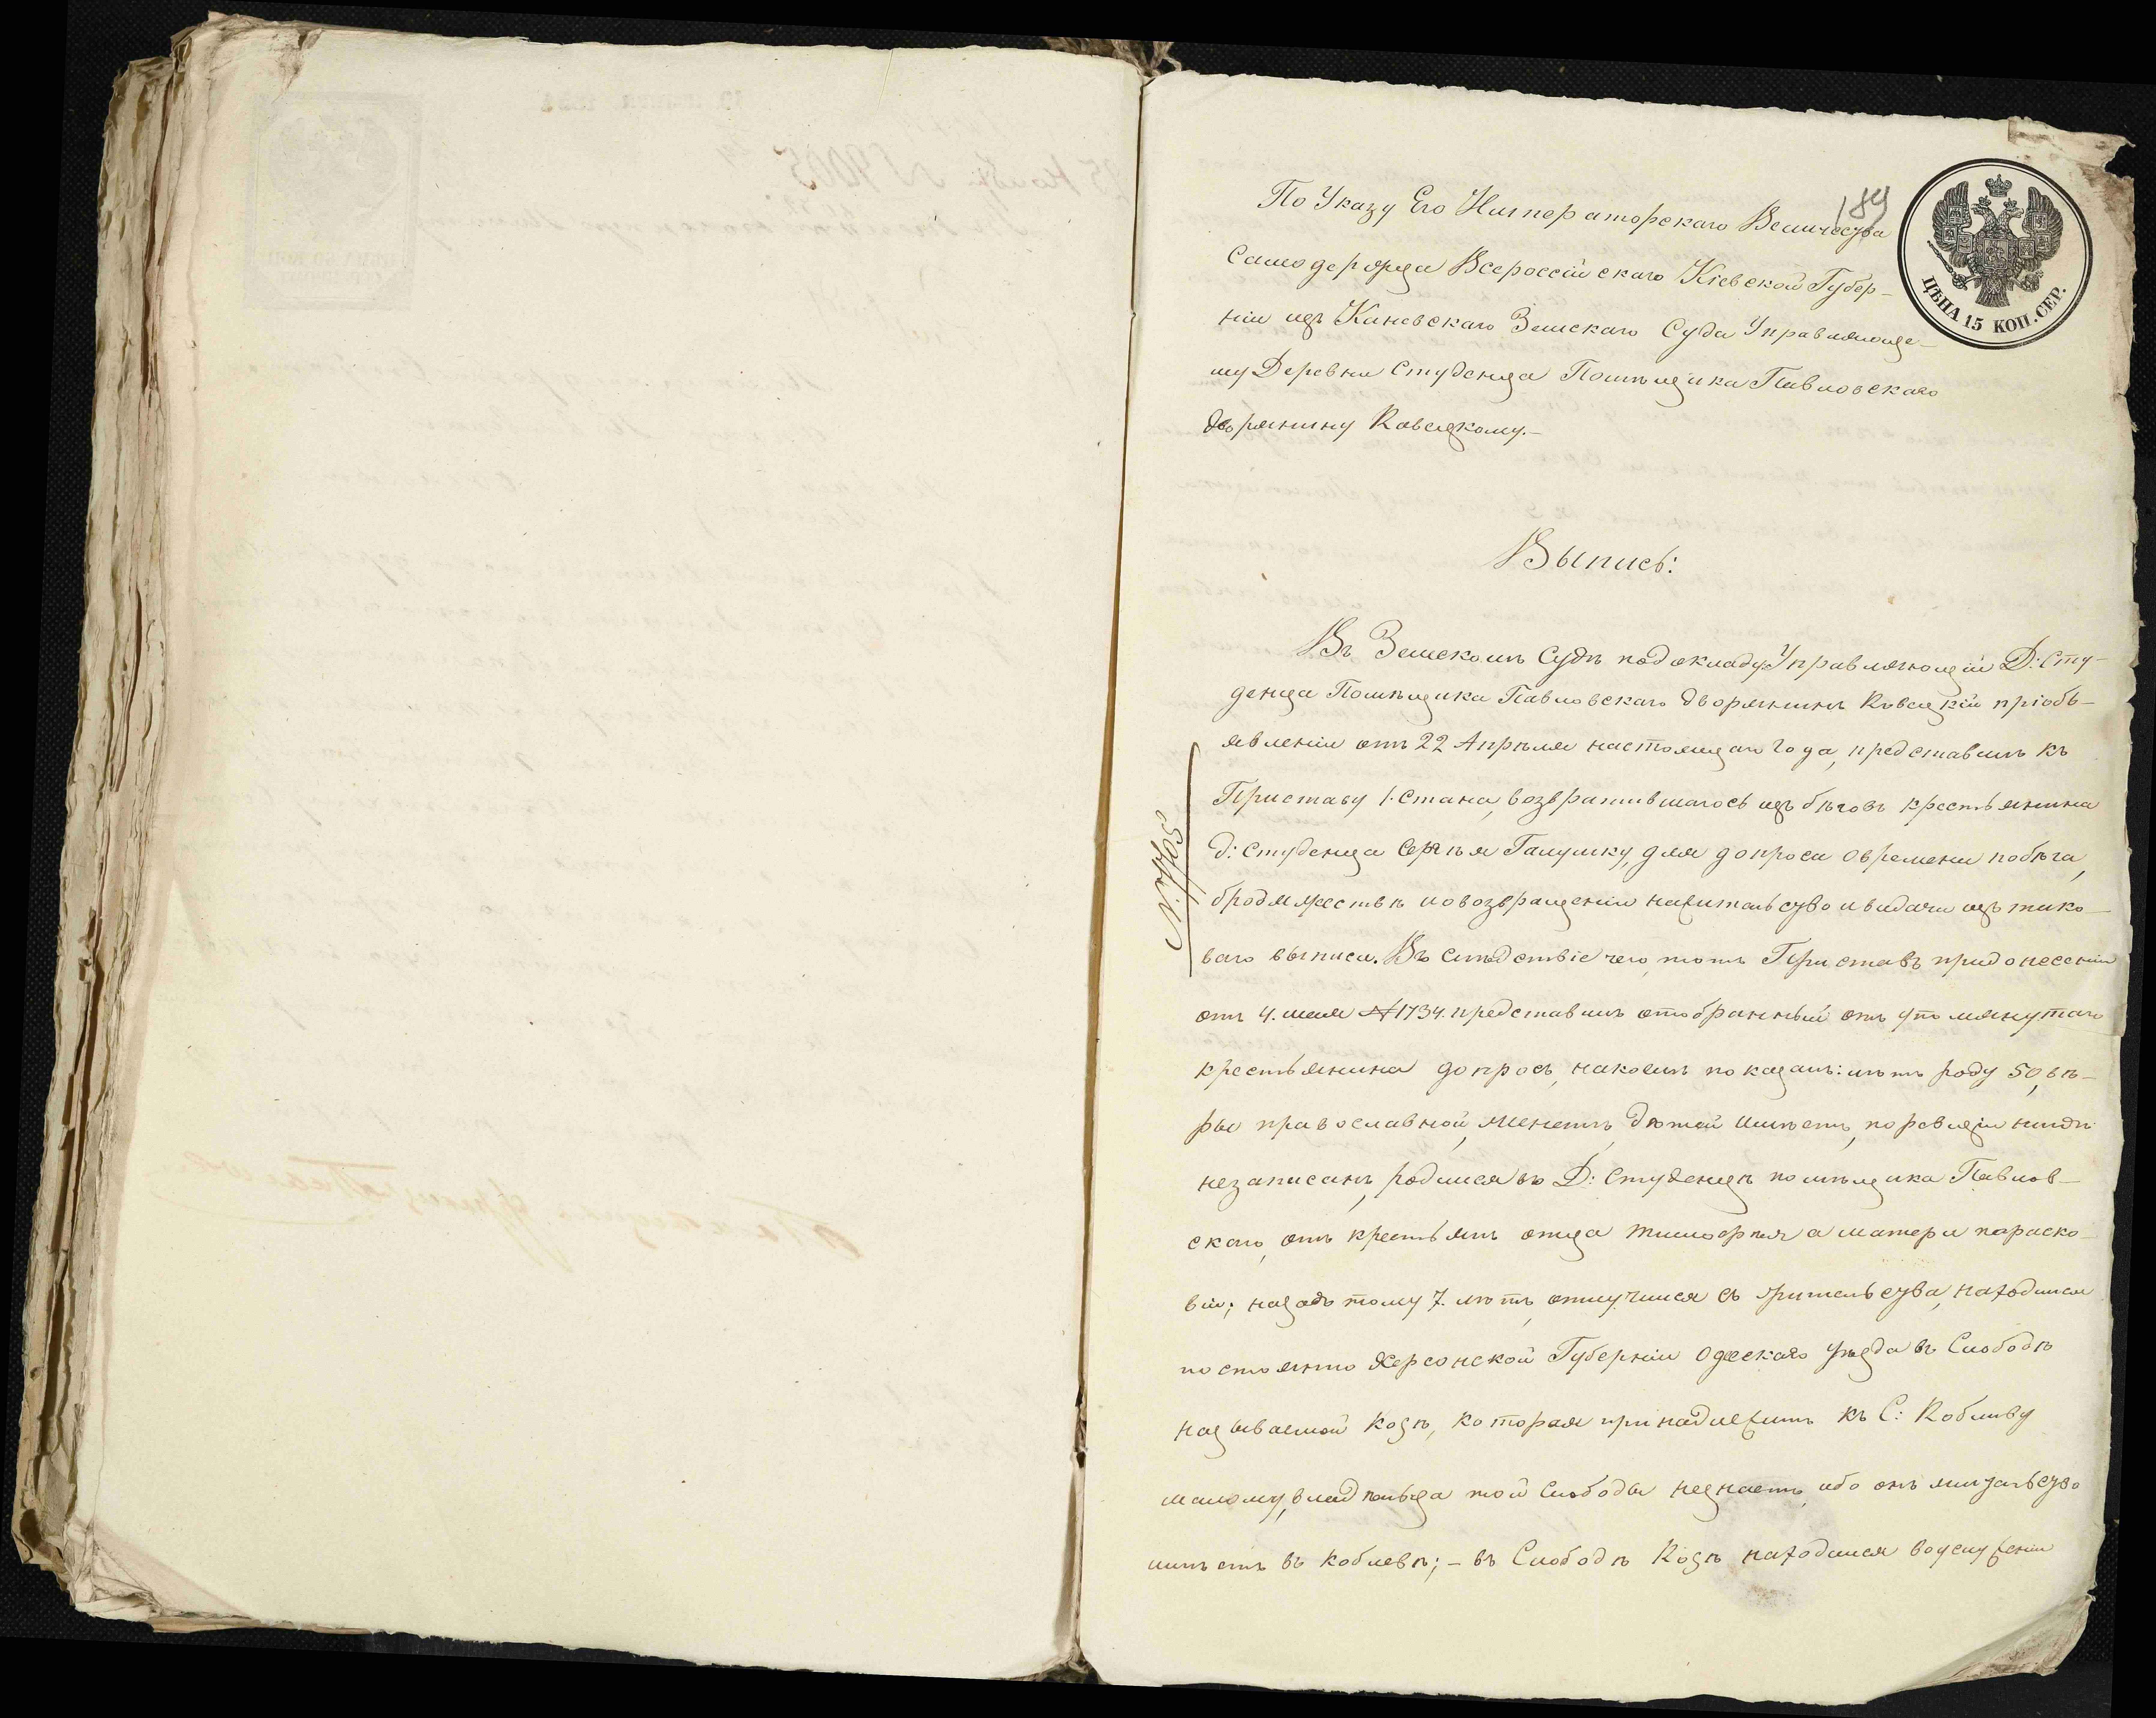 189
ЦѢНА 15 КОП. СЕР.
По Указу Его Императорскаго Величества
Самодержца Всероссійскаго Кіевской Губер-
ніи изъ Каневскаго Земскаго Суда Управляюще-
му Деревни Студенца Помѣщика Павловскаго
дворянину Ковецкому.-
Выпись:
Въ Земскомъ Судѣ подокладу: Управляющій Д: Сту-
денца Помѣщика Павловскаго дворянинъ Ковецкій пріобъ-
явленіи отъ 22 Апрѣля настоящаго года, представилъ къ
Приставу 1. Стана, возвратившагось изъ бѣговъ крестьянина
д: Студенца Сергѣя Галушку, для допроса овремени побѣга,
бродяжествѣ иовозвращеніи нажительство ивидачи изъ тако-
ваго выписи. Въ слѣдствіе чего, тотъ Приставъ придонесеніи
отъ 4. мая №1734. представилъ отобранный отъ упомянутаго
крестьянина допросъ, накоемъ показалъ: лѣтъ роду 50, вѣ-
ры православной, женатъ, дѣтей имѣетъ, поревизіи нигдѣ
незаписанъ, родился въ Д: Студенцѣ помѣщика Павлов-
скаго, отъ крестьянъ отца тимофѣя а матери параско-
віи; назадъ тому 7. лѣтъ, отлучился съ жительства, находился
постоянно Херсонской Губерніи Одескаго уѣзда въ Слободѣ
називаемой Козѣ, которая принадлежитъ къ С: Коблеву
малому, владѣльца той Слободы незнаетъ, ибо онъ жительство
имѣетъ въ Коблевѣ; - въ Слободѣ Козѣ находился воуслуженіи